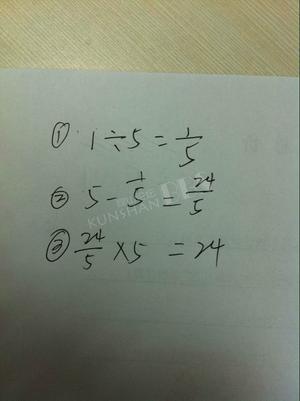 ① 1÷5=1/5
② 5-1/5=24/5
③ 24/5×5=24
KUNSHAN